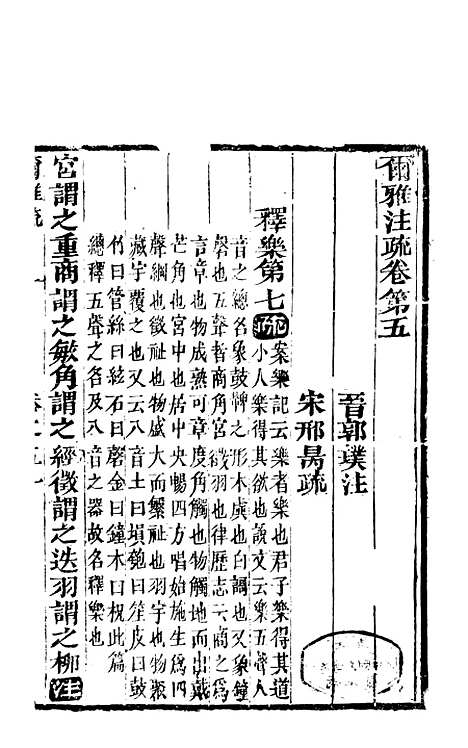 爾雅注疏卷第五
晉郭璞注
宋邢昺疏
釋樂第七疏案樂記云樂者樂也君子樂得其道
小人樂得其欲也說文云樂五聲八
音之總名象鼓鞞之形木虡也白謂也象鐘
磬也五聲者商角宮徵羽也律歷志云商之爲
言章也物成熟可章度角觸也物觸地而出戴
芒角也宮中也居中央暢四方唱始施生爲四
聲綱也徵祉也物盛大而繁祉也羽宇也物聚
藏宇覆之也又云八音土曰塤匏曰笙皮曰鼓
竹曰管絲曰絃石曰磬金曰鐘木曰柷此篇
總釋五聲之名及八音之器故名釋樂也
宮謂之重商謂之敏角謂之經徵謂之迭羽謂之柳注
爾雅疏 卷之五 一